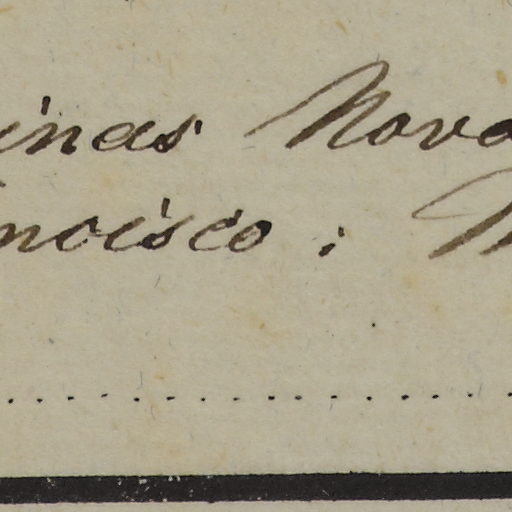 inas Nova
ncisco: M